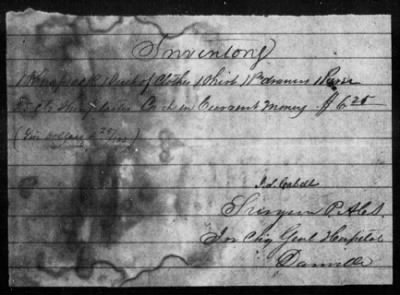 Inventory
1 Knapsack 1 Suit of Clothes 1 Shirt 1 Pr drawers 1 Purse
Cash in Current Money. $ 6.25
(Six dollars & 25/100)
Surgeon P. A.
In Chg Genl Hospital
Danville